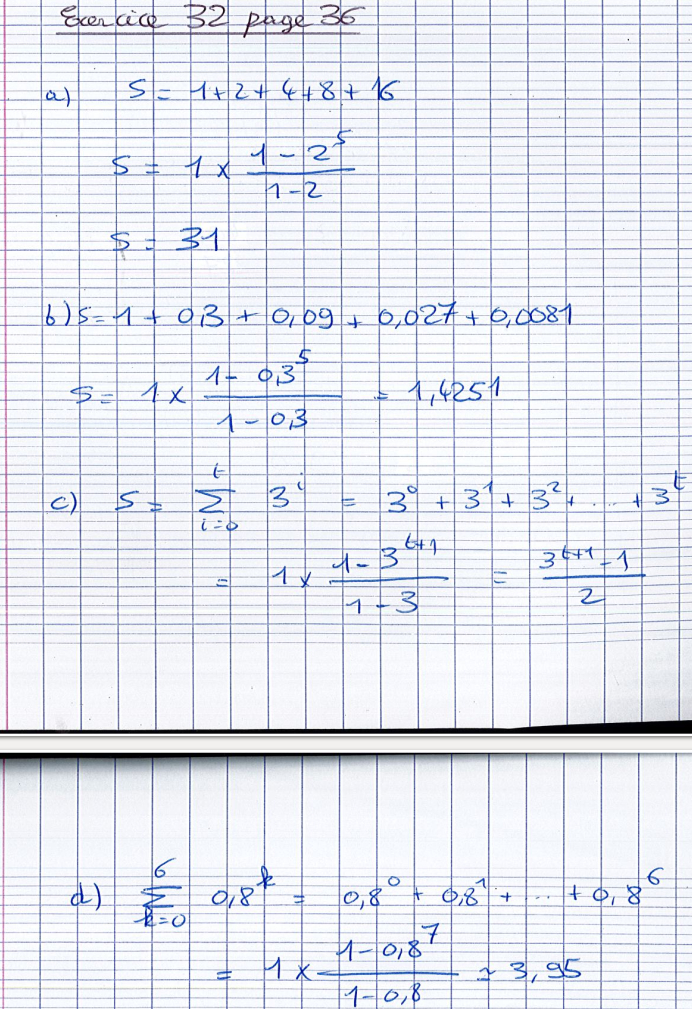 Exercice 32 page 36
a) S = 1+2+4+8+16
S = 1 × (1 - 2^5)/(1-2)
S = 31
b) S = 1 + 0,3 + 0,09 + 0,027 + 0,0081
S = 1 × (1 - 0,3^5)/(1 - 0,3) = 1,4251
c) S = ∑_{i=0}^{t} 3^i = 3^0 + 3^1 + 3^2 + ... + 3^t
= 1 × (1 - 3^{t+1})/(1 - 3) = (3^{t+1} - 1)/2
d) ∑_{k=0}^{6} 0,8^k = 0,8^0 + 0,8^1 + ... + 0,8^6
= 1 × (1 - 0,8^7)/(1 - 0,8) ≃ 3,95